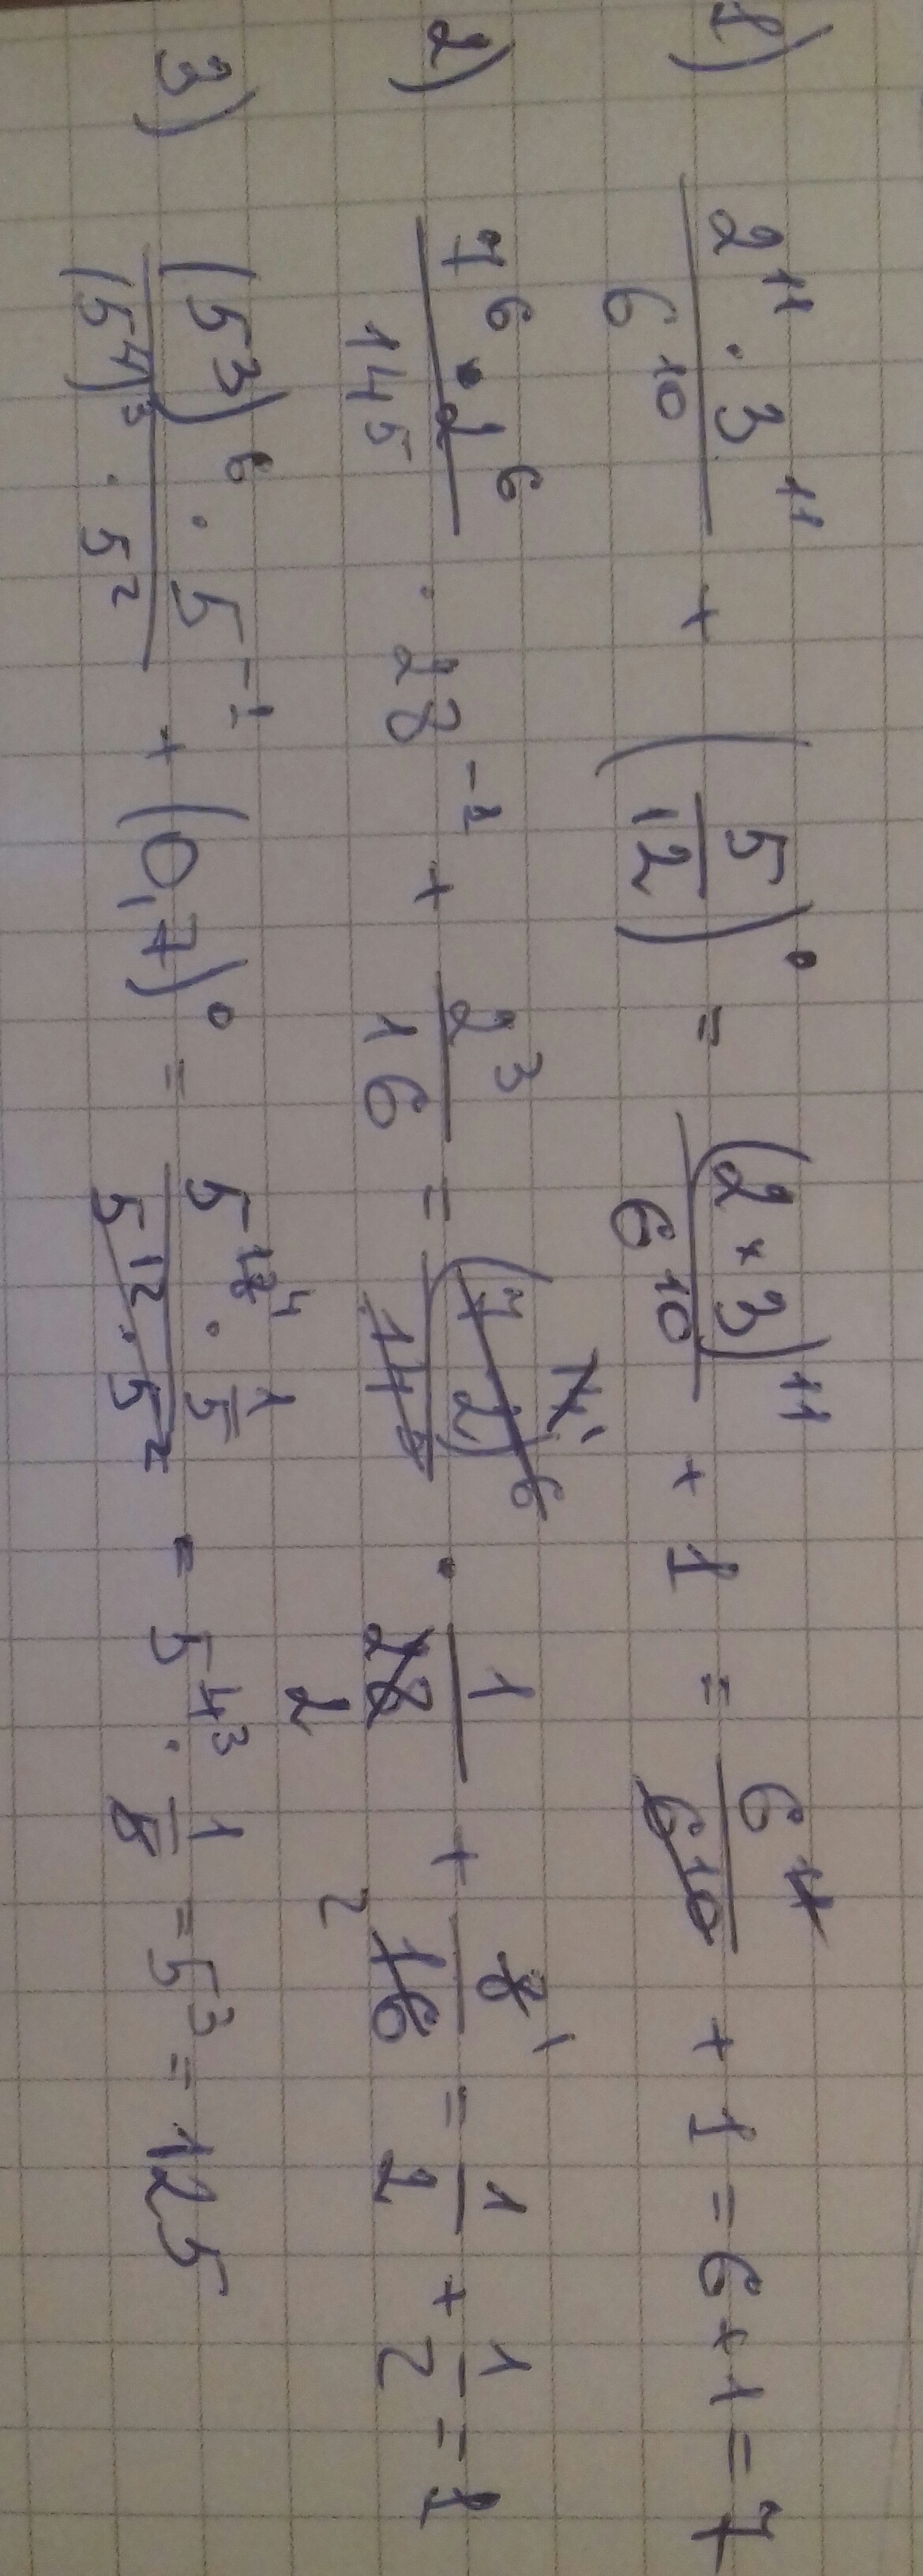 1) (2^11 · 3^11)/6^10 + (5/12)^0 = (2 × 3)^11/6^10 + 1 = 6^11/6^10 + 1 = 6 + 1 = 7
2) (7^6 · 2^6)/14^5 · 28^-1 + 2^3/16 = (7 2)^6/14^5 14 1 · 1/28 2 + 8 1/16 2 = 1/2 + 1/2 = 1
3) ((5^3)^6 · 5^-1)/((5^4)^3 · 5^2) + (0,7)^0 = (5^18 4 · 1/5)/(5^12 · 5^2) = 5^4 3 · 1/5 = 5^3 = 125